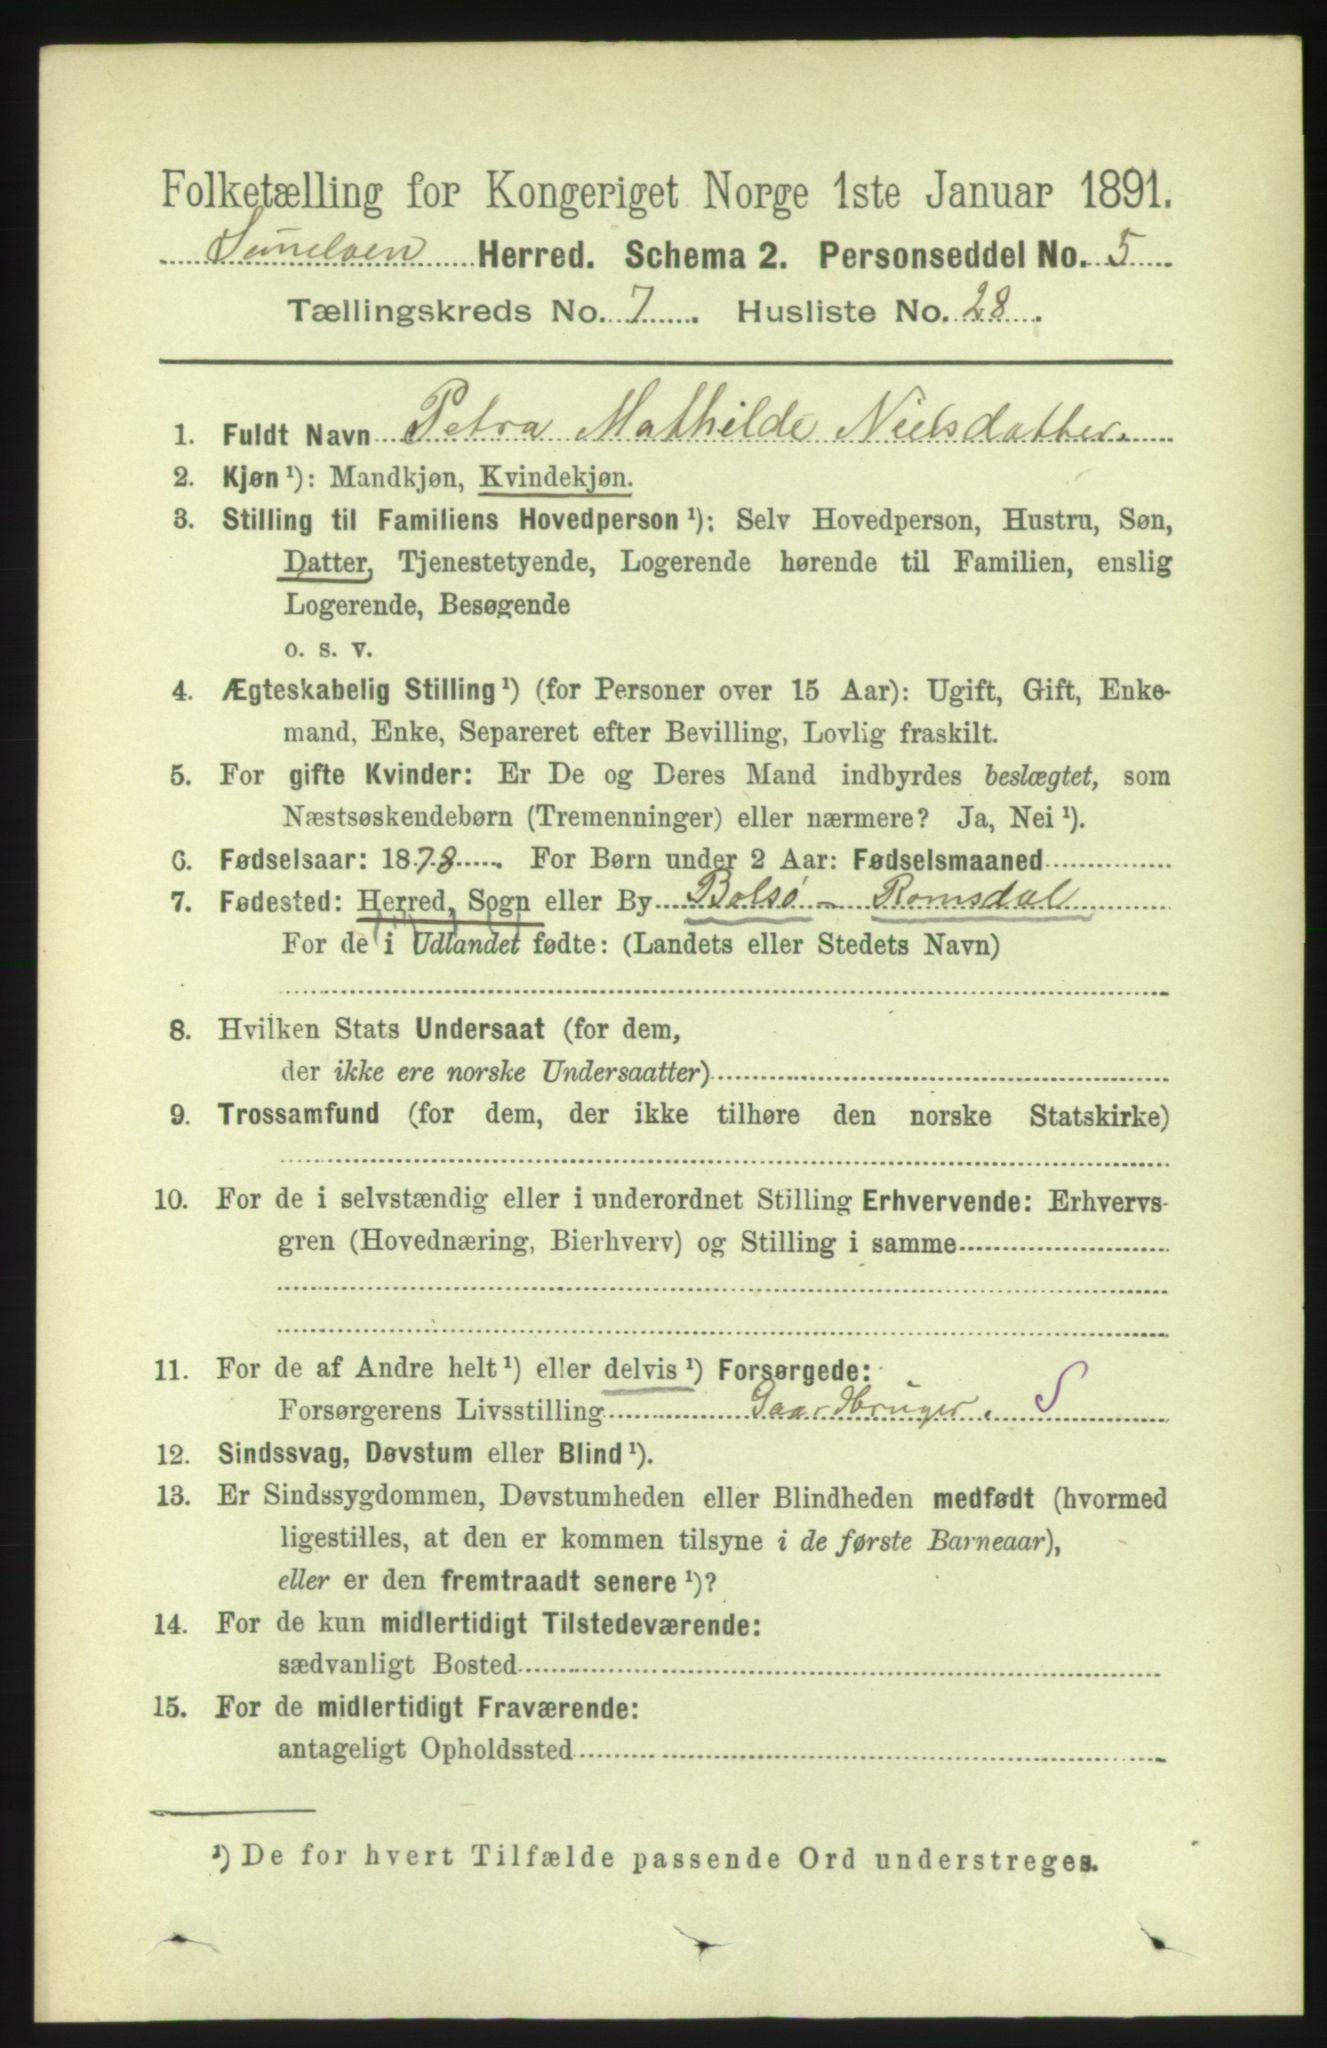 Folketælling for Kongeriget Norge 1ste Januar 1891.
Sunelven Herred. Schema 2. Personseddel No. 5
Tællingskreds No. 7. Husliste No. 28.
1. Fuldt Navn Petra Mathilde Nielsdatter.
2. Kjøn ¹): Mandkjøn, Kvindekjøn.
3. Stilling til Familiens Hovedperson ¹): Selv Hovedperson, Hustru, Søn,
Datter, Tjenestetyende, Logerende hørende til Familien, enslig
Logerende, Besøgende
o. s. v.
4. Ægteskabelig Stilling ¹) (for Personer over 15 Aar): Ugift, Gift, Enke-
mand, Enke, Separeret efter Bevilling, Lovlig fraskilt.
5. For gifte Kvinder: Er De og Deres Mand indbyrdes beslægtet, som
Næstsøskendebørn (Tremenninger) eller nærmere? Ja, Nei ¹).
6. Fødselsaar: 1878. For Børn under 2 Aar: Fødselsmaaned
7. Fødested: Herred, Sogn eller By Bolsø - Romsdal
For de i Udlandet fødte: (Landets eller Stedets Navn)
8. Hvilken Stats Undersaat (for dem,
der ikke ere norske Undersaatter)
9. Trossamfund (for dem, der ikke tilhøre den norske Statskirke)
10. For de i selvstændig eller i underordnet Stilling Erhvervende: Erhvervs-
gren (Hovednæring, Bierhverv) og Stilling i samme
11. For de af Andre helt ¹) eller delvis ¹) Forsørgede:
Forsørgerens Livsstilling Gaardbruger. S
12. Sindssvag, Døvstum eller Blind ¹).
13. Er Sindssygdommen, Døvstumheden eller Blindheden medfødt (hvormed
ligestilles, at den er kommen tilsyne i de første Barneaar),
eller er den fremtraadt senere ¹)?
14. For de kun midlertidigt Tilstedeværende:
sædvanligt Bosted
15. For de midlertidigt Fraværende:
antageligt Opholdssted
¹) De for hvert Tilfælde passende Ord understreges.